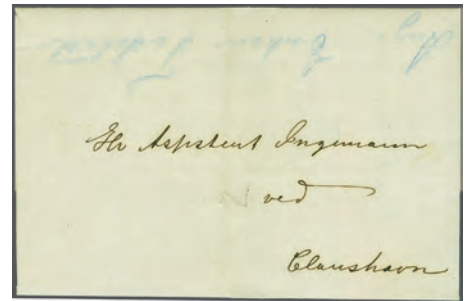 Hr Assistent Ingemann
ved
Claushavn